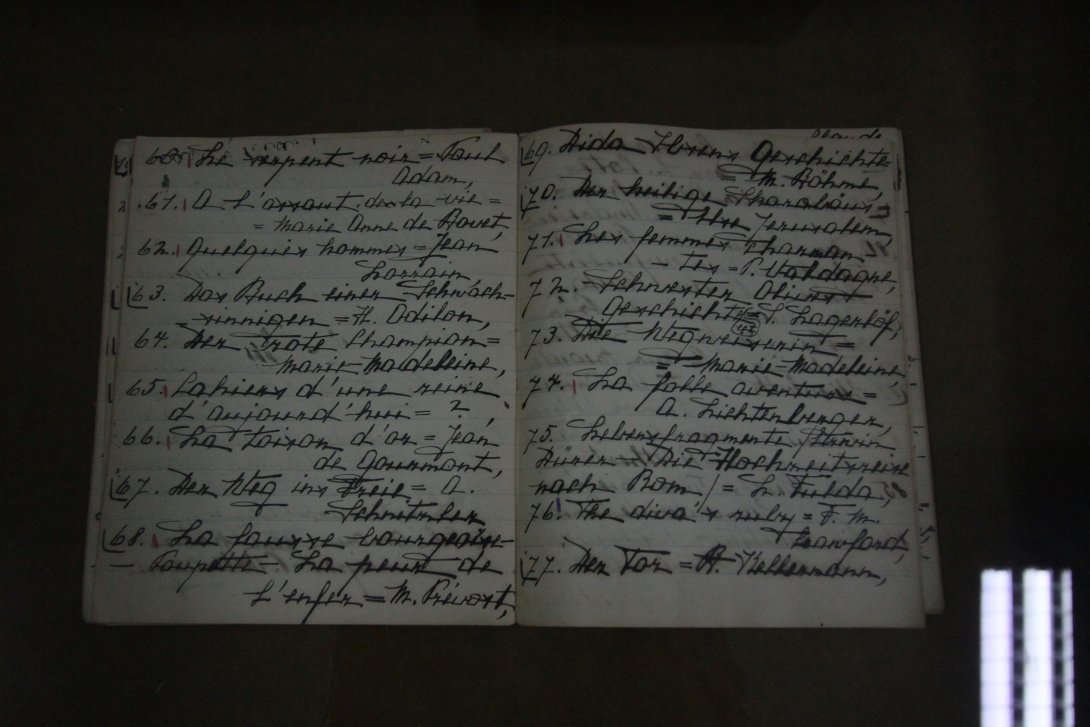 60. Le serpent noir = Paul
Adam,
61. A l'assaut de la vie =
= Marie Anne de Bovet,
62. Quelques hommes = Jean
Lorrain
63. Das Buch einer Schwach-
sinnigen = H. Odilon,
64. Der rote Champion =
Marie-Madeleine,
65. Cahiers d'une reine
d'aujourd'hui = ?,
66. La toison d'or = Jean
de Gourmont,
67. Der Weg ins Freie = A.
Schnitzler
68. La fausse bourgeoise -
- Poupette - La peur de
l'enfer = M. Prévost,
69. Dida Ibsens Geschichte
= M. Böhme,
70. Der heilige Skarabäus =
= Else Jerusalem,
71. Les femmes charman
- tes = P. Valdagne,
72. Schwester Olives
Geschichte = S. Lagerlöf,
73. Die Wegweiserin =
= Marie-Madeleine,
74. La folle aventure =
A. Lichtenberger,
75. Lebensfragmente
Dürer - Die Hochzeitsreise
nach Rom / = L. Fulda,
76. The diva's ruby = F. M.
Crawford,
77. Der Tor = B. Kellermann,